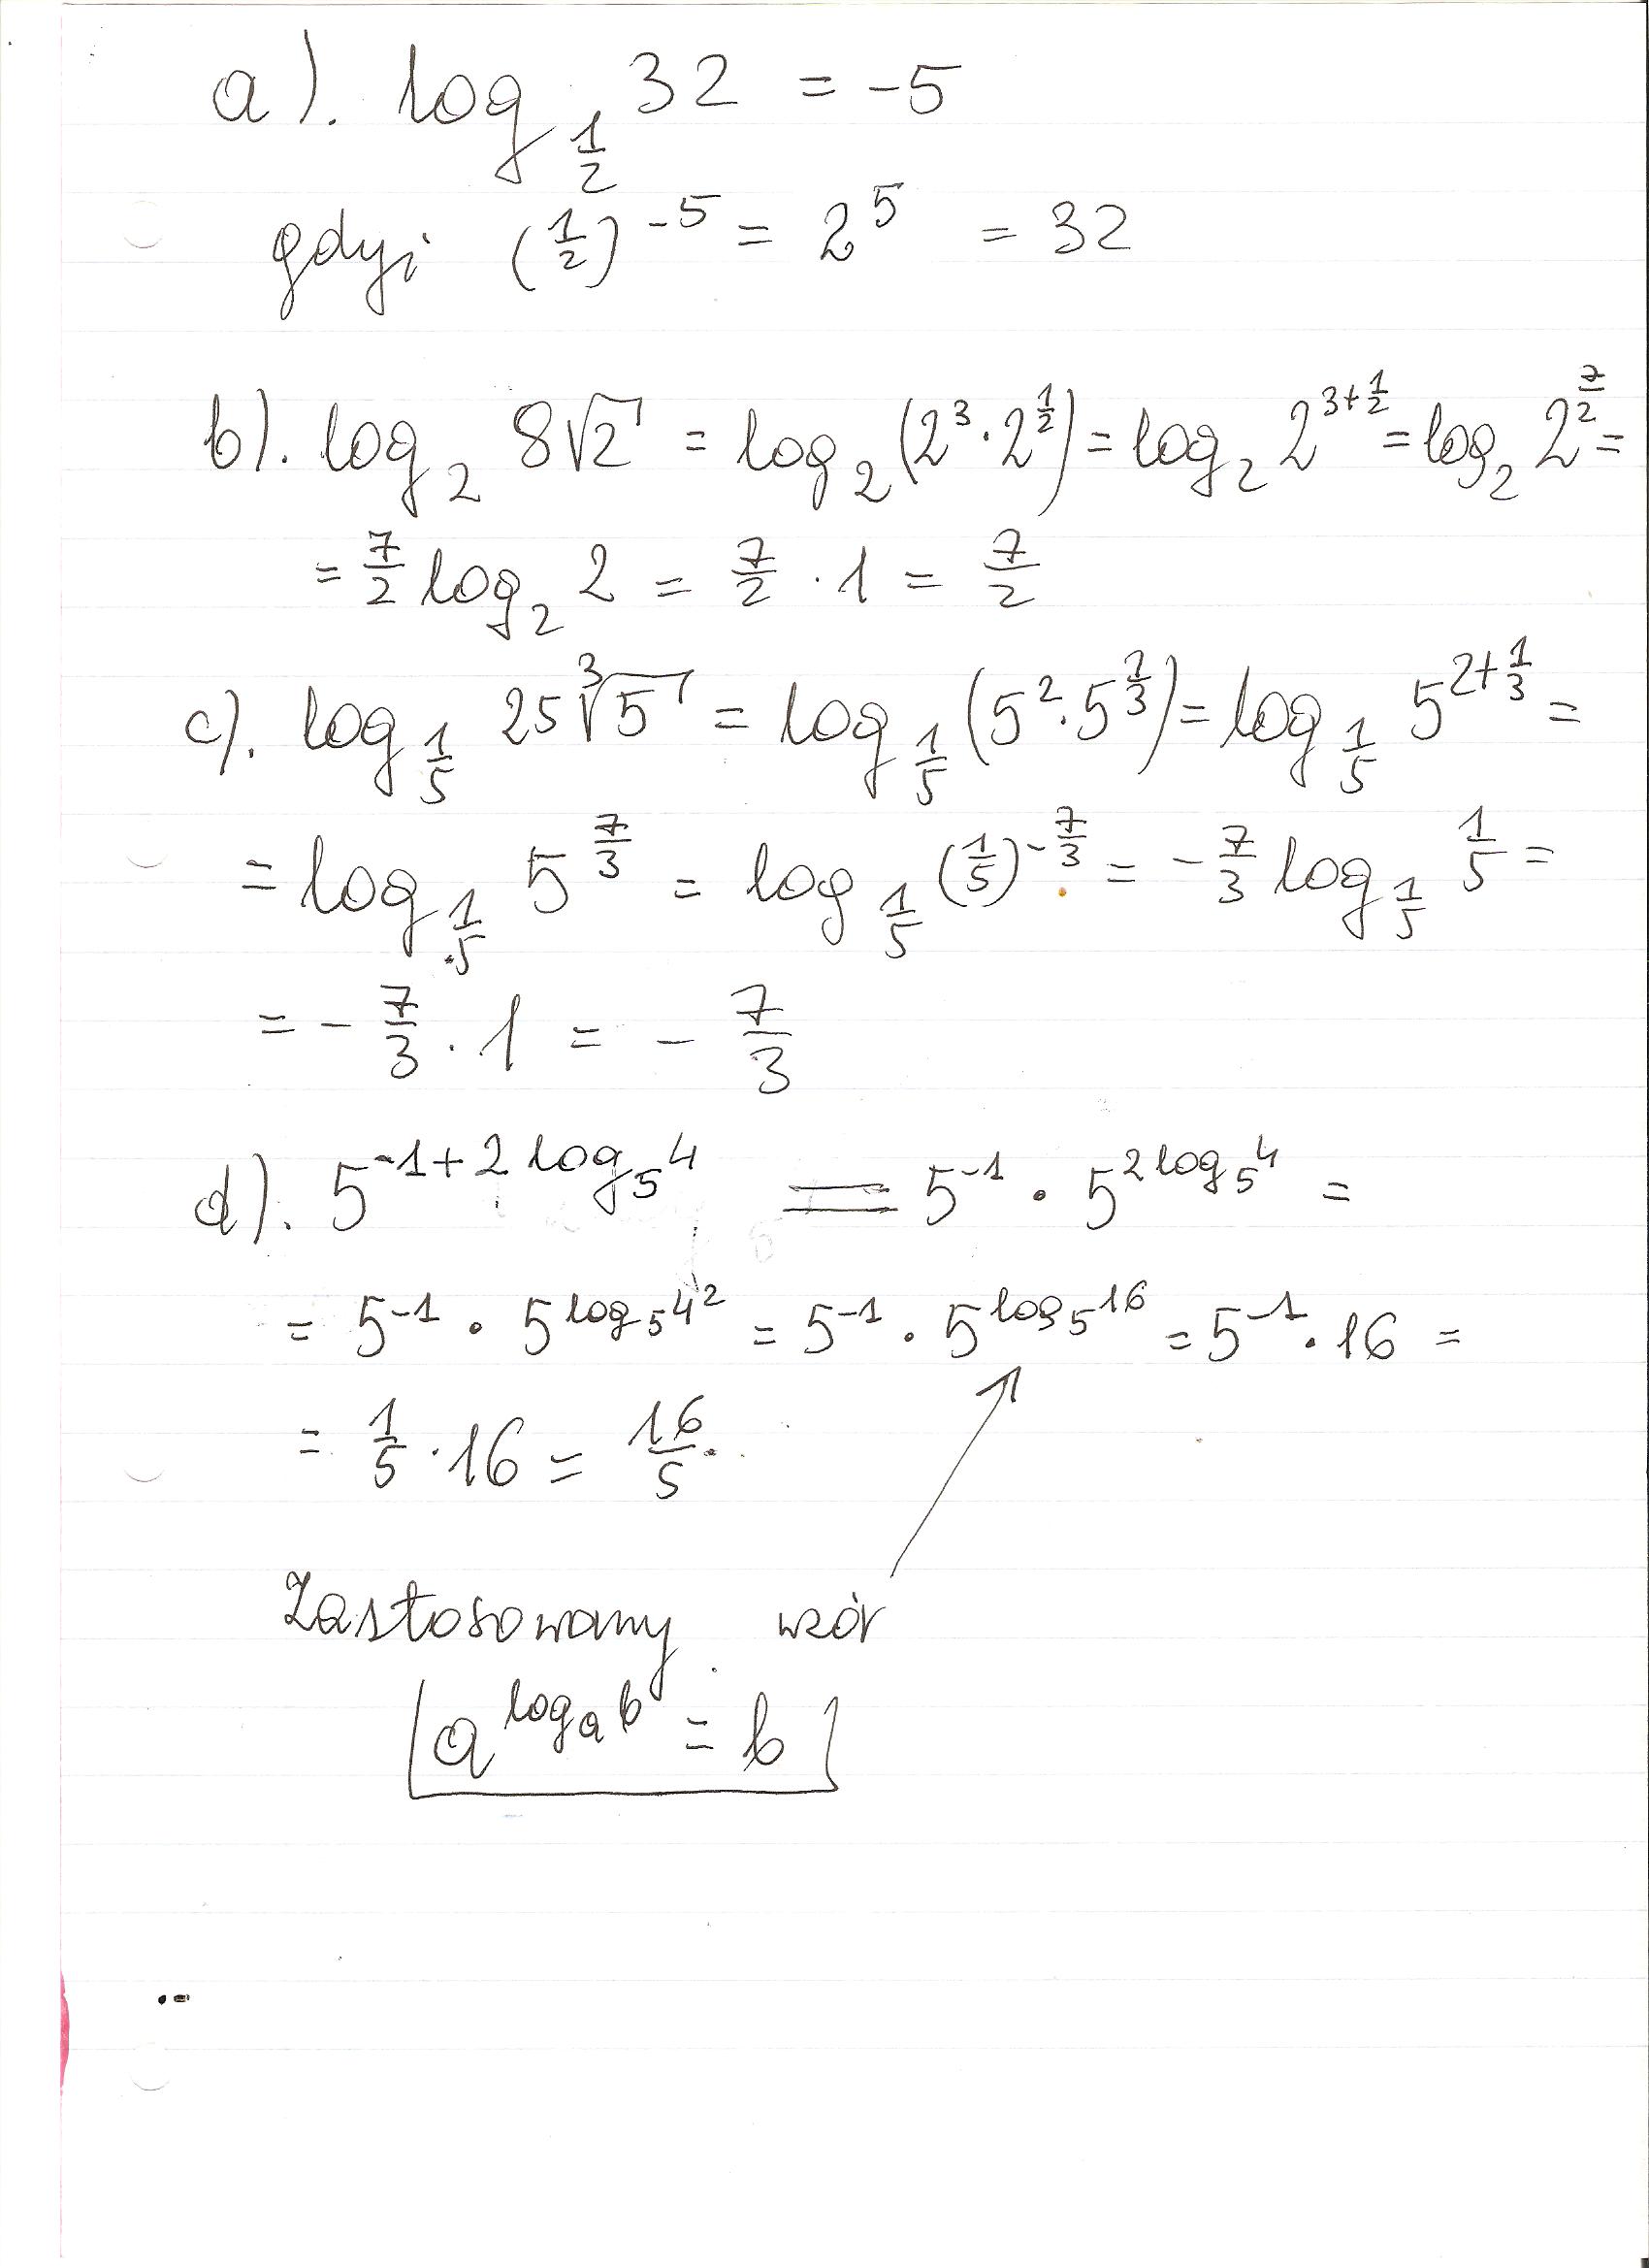 a). log_{1/2} 32 = -5
gdyż (1/2)^{-5} = 2^5 = 32
b). log_2 8√2 = log_2 (2^3 · 2^{1/2}) = log_2 2^{3+1/2} = log_2 2^{7/2} =
= 7/2 log_2 2 = 7/2 · 1 = 7/2
c). log_{1/5} 25∛5 = log_{1/5} (5^2 · 5^{1/3}) = log_{1/5} 5^{2+1/3} =
= log_{1/5} 5^{7/3} = log_{1/5} (1/5)^{-7/3} = -7/3 log_{1/5} 1/5 =
= -7/3 · 1 = -7/3
d). 5^{-1+2 log_5 4} = 5^{-1} · 5^{2 log_5 4} =
= 5^{-1} · 5^{log_5 4^2} = 5^{-1} · 5^{log_5 16} = 5^{-1} · 16 =
= 1/5 · 16 = 16/5.
Zastosowany wzór
a^{log_a b} = b